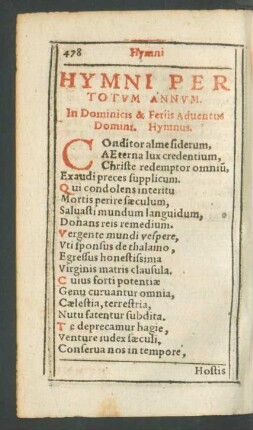 478 Hymni
HYMNI PER
TOTVM ANNVM.
In Dominicis & Feriis Aduentus
Domini. Hymnus.
COnditor alme siderum,
AEterna lux credentium,
Christe redemptor omniũ,
Exaudi preces supplicum.
Qui condolens interitu
Mortis perire sæculum,
Saluasti mundum languidum,
Donans reis remedium.
Vergente mundi vespere,
Vti sponsus de thalamo,
Egressus honestissima
Virginis matris clausula.
Cuius forti potentiæ
Genu curuantur omnia,
Cælestia, terrestria,
Nutu fatentur subdita.
Te deprecamur hagie,
Venture iudex sæculi,
Conserua nos in tempore,
Hostis